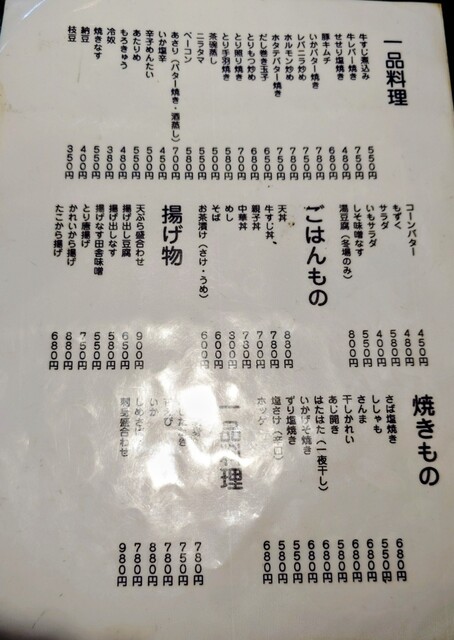 一品料理
牛すじ煮込み 550円
牛レバー焼き 750円
せせり塩焼き 480円
豚キムチ 680円
いかバター焼き 780円
レバニラ炒め 780円
ホルモン炒め 750円
ホタテバター焼き 750円
だし巻き玉子 650円
とりもつ炒め 680円
とり照り焼き 700円
とり手羽焼き 580円
茶碗蒸し 500円
ニラタマ 550円
ベーコン 580円
あさり（バター焼き・酒蒸し） 700円
いか塩辛 450円
辛子めんたい 500円
あたりめ 550円
もろきゅう 480円
冷奴 380円
焼きなす 550円
納豆 400円
枝豆 350円
コーンバター 450円
もずく 480円
サラダ 580円
いもサラダ 400円
しそ味噌なす 550円
湯豆腐（冬場のみ） 800円
ごはんもの
天丼 880円
牛すじ丼、 780円
親子丼 700円
中華丼 780円
めし 300円
そば 600円
お茶漬け（さけ・うめ） 600円
揚げ物
天ぷら盛合わせ 900円
揚げ出し豆腐
揚げ出しなす 580円
揚げなす田舎味噌 550円
とり唐揚げ 750円
かれいから揚げ 880円
たこから揚げ 680円
焼きもの
さば塩焼き 680円
ししゃも 550円
さんま 680円
干しかれい 680円
あじ開き 580円
はたはた（一夜干し） 680円
いかげそ焼き 680円
ずり塩焼き 580円
塩さけ（辛口） 580円
ホッケ 680円
一品料理
780円
750円
780円
いか 880円
しめさば 780円
刺身盛合わせ 980円